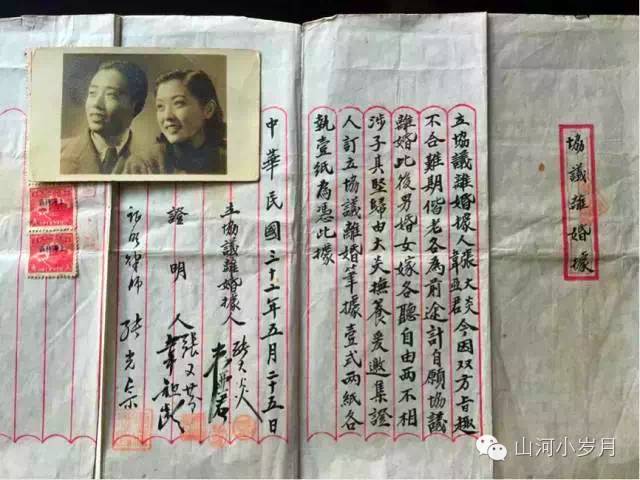 協議離婚據
立協議離婚據人張大炎韋亞君今因双方旨趣
不合難期偕老各為前途計自願協議
離婚此後男婚女嫁各聽自由两不相
涉子具堅歸由大炎撫養爰邀集證
人訂立協議離婚筆據壹式两紙各
執壹紙為憑此據
中華民國三十二年五月二十五日
立協議離婚據人 張大炎
韋亞君
證明人 張又
韋祖
律師 張光宗
山河小岁月